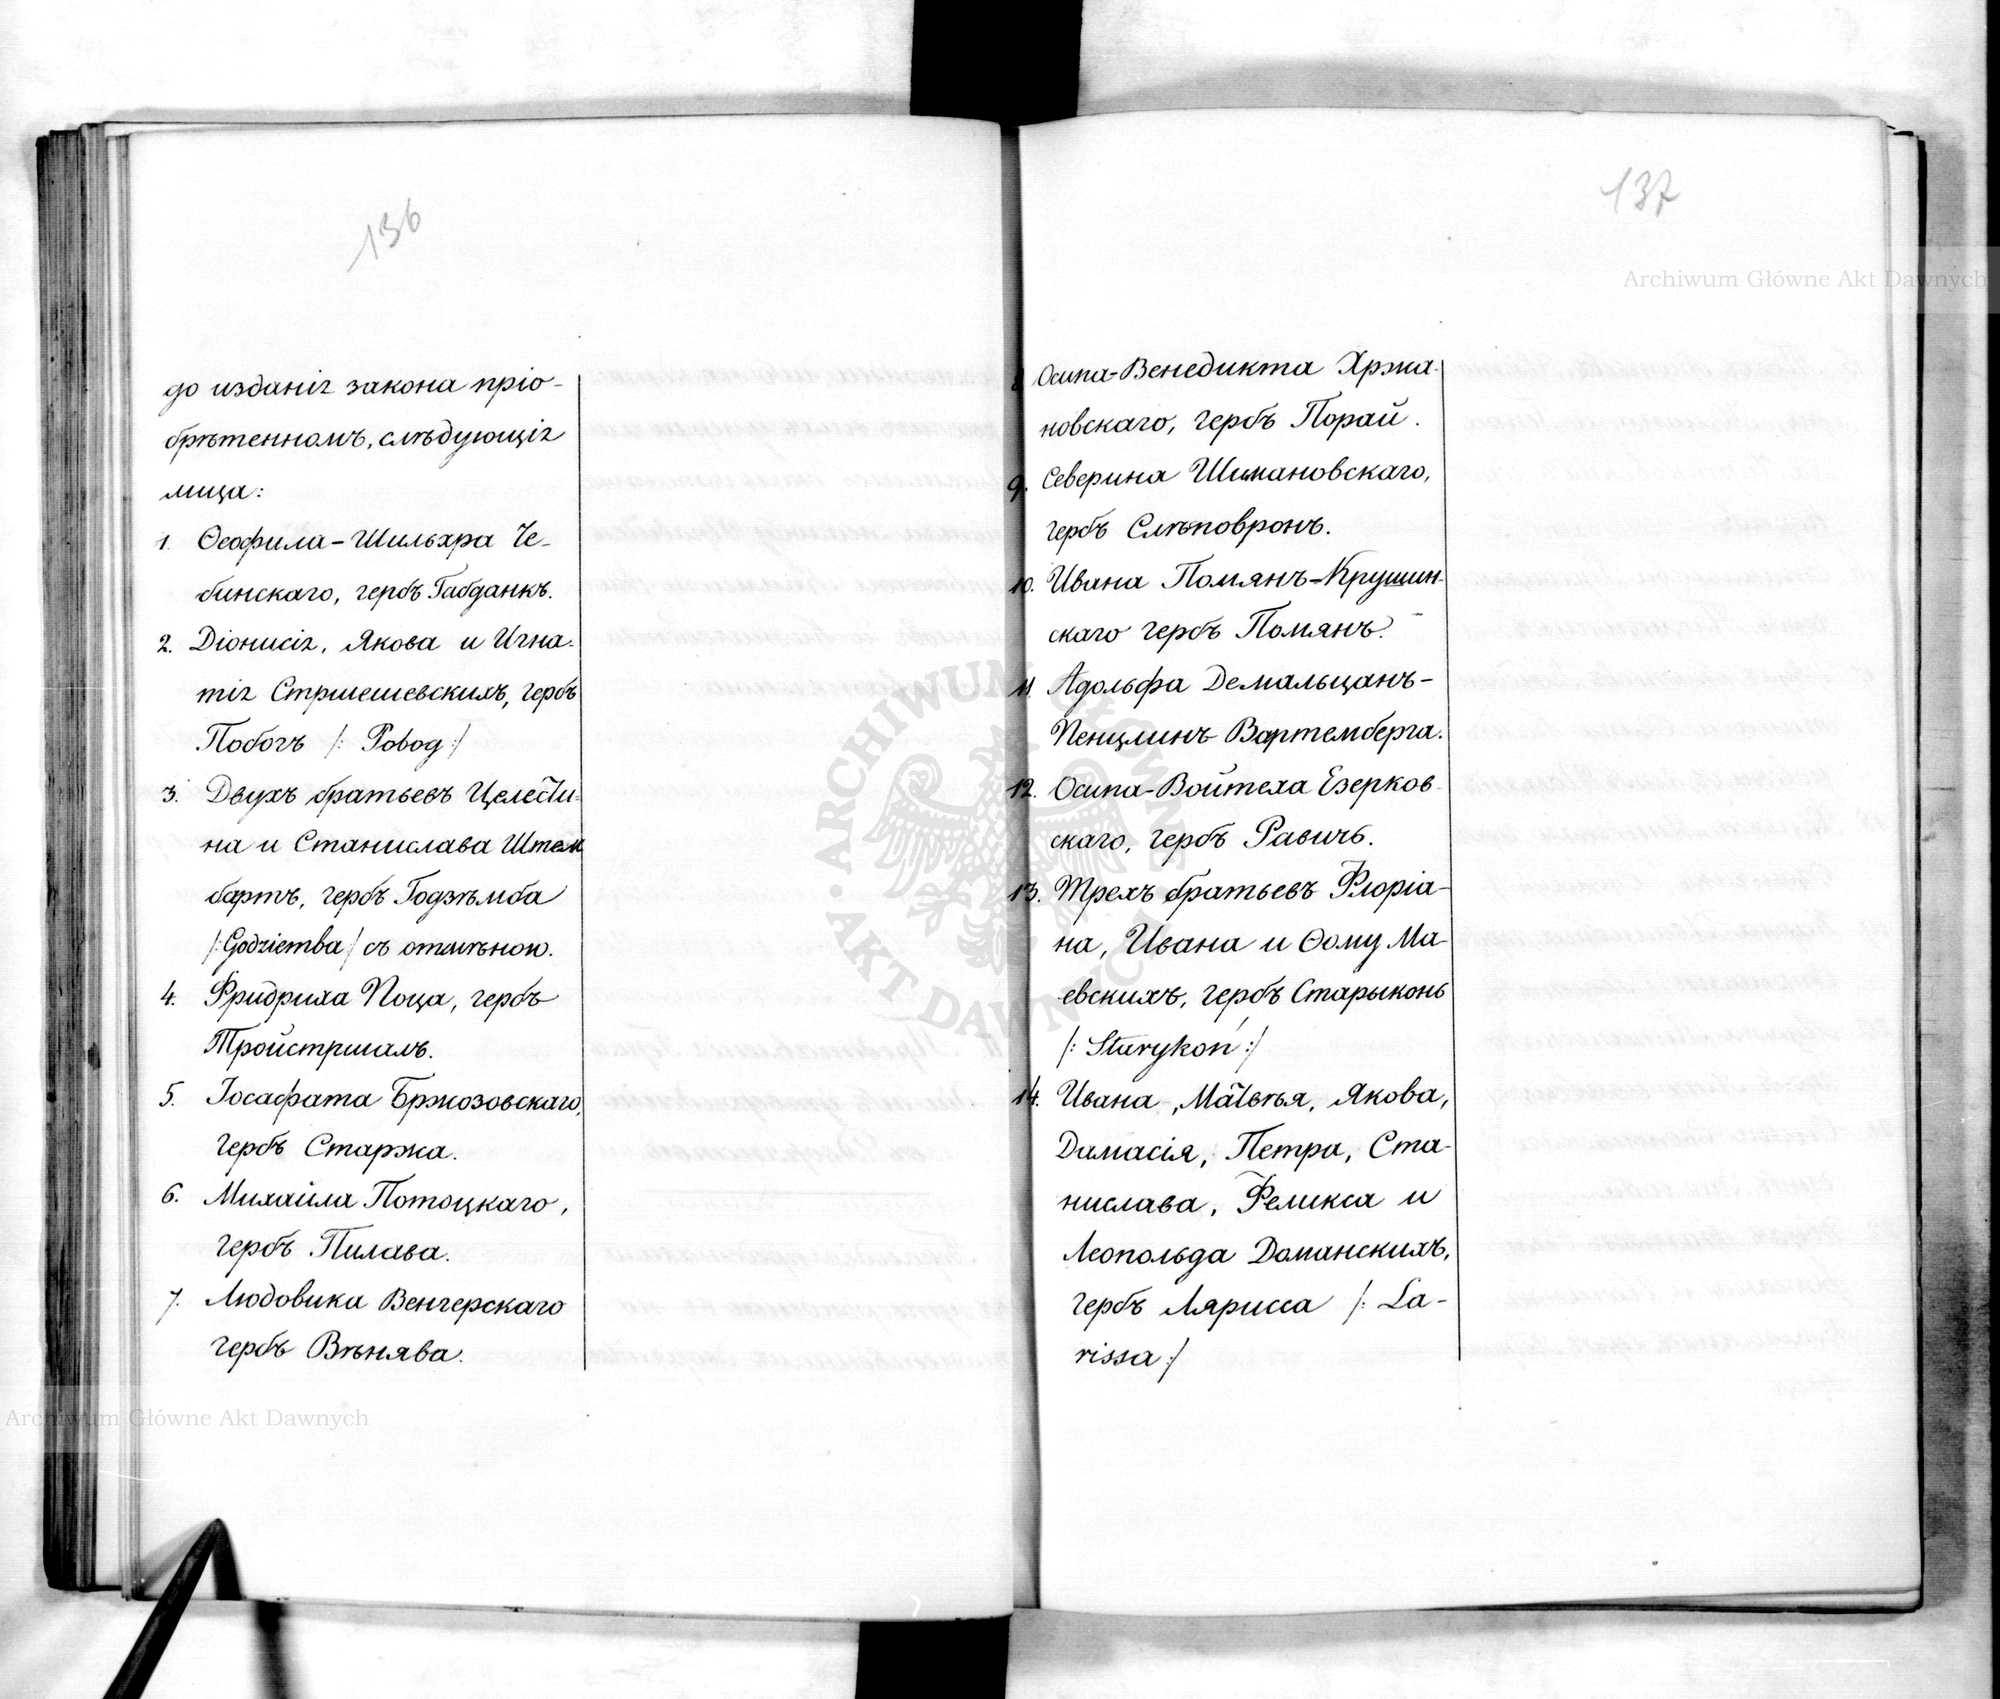 136
до изданія закона пріо-
брѣтенномъ, слѣдующія
лица:
1. Ѳеофила-Шильхра Че-
бинскаго, гербъ Габданкъ.
2. Діонисія, Якова и Игна-
тія Стршешевскихъ, гербъ
Побогъ /: Pobog :/
3. Двухъ братьевъ Целести-
на и Станислава Штем
бартъ, гербъ Годзѣмба
/: Godziemba :/ съ отмѣною.
4. Фридриха Поца, гербъ
Тройстршалъ.
5. Іосафата Бржозовскаго,
гербъ Старжа.
6. Михаила Потоцкаго,
гербъ Пилава.
7. Людовика Венгерскаго
гербъ Вѣнява.
137
Archiwum Główne Akt Dawnych
8 Осипа-Венедикта Хржа-
новскаго, гербъ Порай.
9. Северина Шимановскаго,
гербъ Слѣповронъ.
10. Ивана Помянъ-Крушин-
скаго гербъ Помянъ.
11. Адольфа Демальцанъ-
Пенцлинъ Вартемберга.
12. Осипа-Войтеха Езерков-
скаго, гербъ Равичъ.
13. Трехъ братьевъ Флоріа-
на, Ивана и Ѳому Ма-
евскихъ, гербъ Старыконь
/: Starykoń :/
14. Ивана, Матвѣя, Якова,
Дамасія, Петра, Ста-
нислава, Феликса и
Леопольда Доманскихъ,
гербъ Лярисса /: La-
rissa :/
ARCHIWUM GŁÓWNE AKT DAWNYCH
Archiwum Główne Akt Dawnych